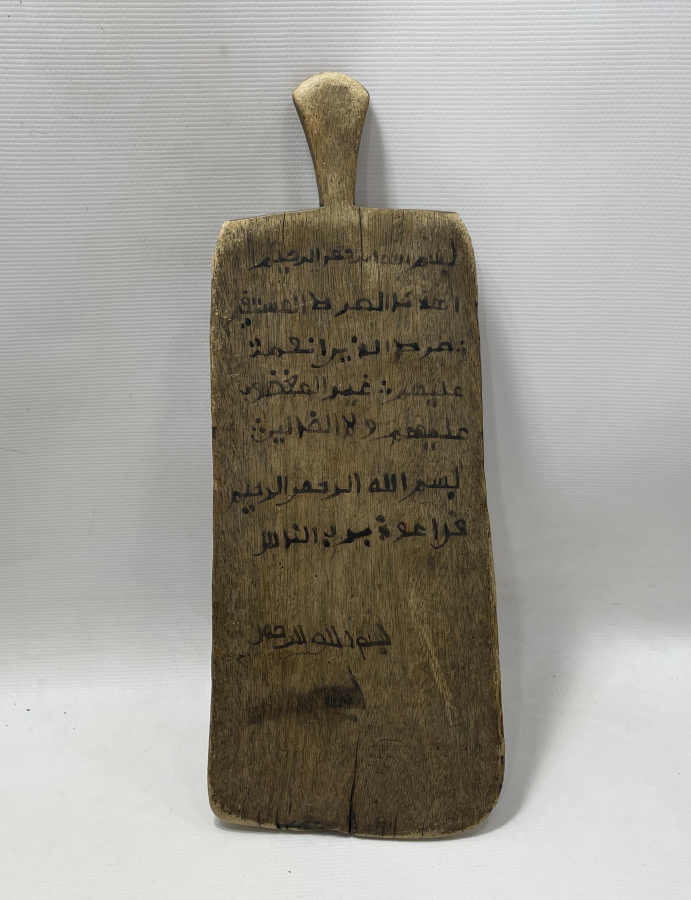 بسم الله الرحمن الرحيم
اهدنا الصرط المستقيم
صرط الذين انعمت
عليهم غير المغضوب
عليهم ولا الضالين
بسم الله الرحمن الرحيم
قل اعوذ برب الناس
بسم الله الرحمن